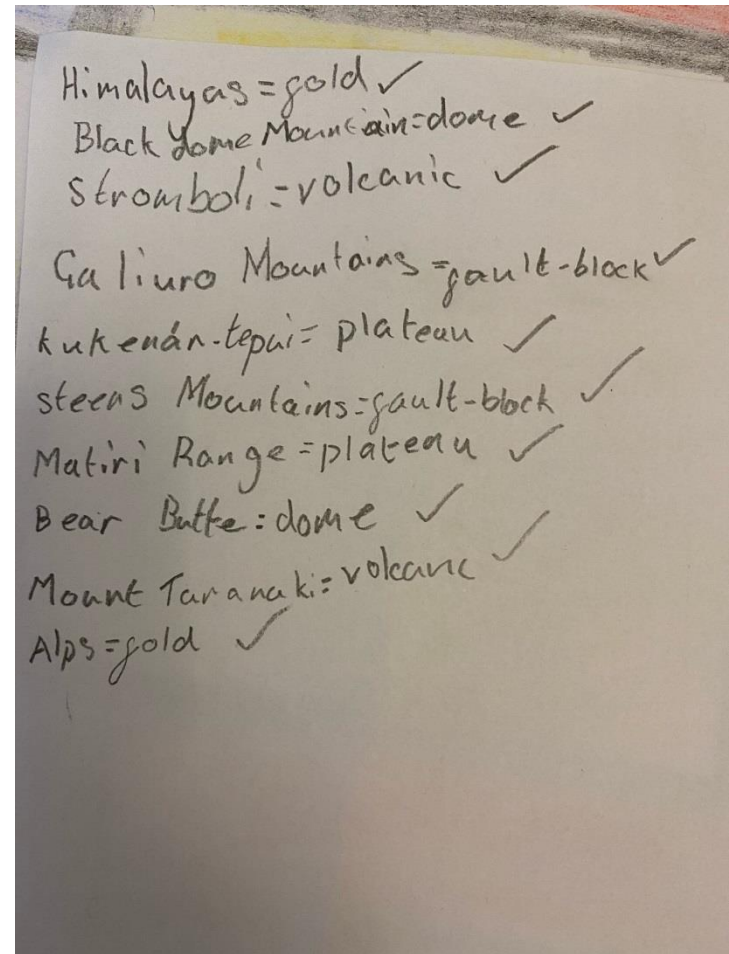 Himalayas=fold ✓
Black Dome Mountain=dome ✓
Stromboli=volcanic ✓
Galiuro Mountains=fault-block ✓
kukenán-tepui= plateau ✓
steens Mountains=fault-block ✓
Matiri Range=plateau ✓
Bear Butte=dome ✓
Mount Taranaki=volcanic ✓
Alps=fold ✓